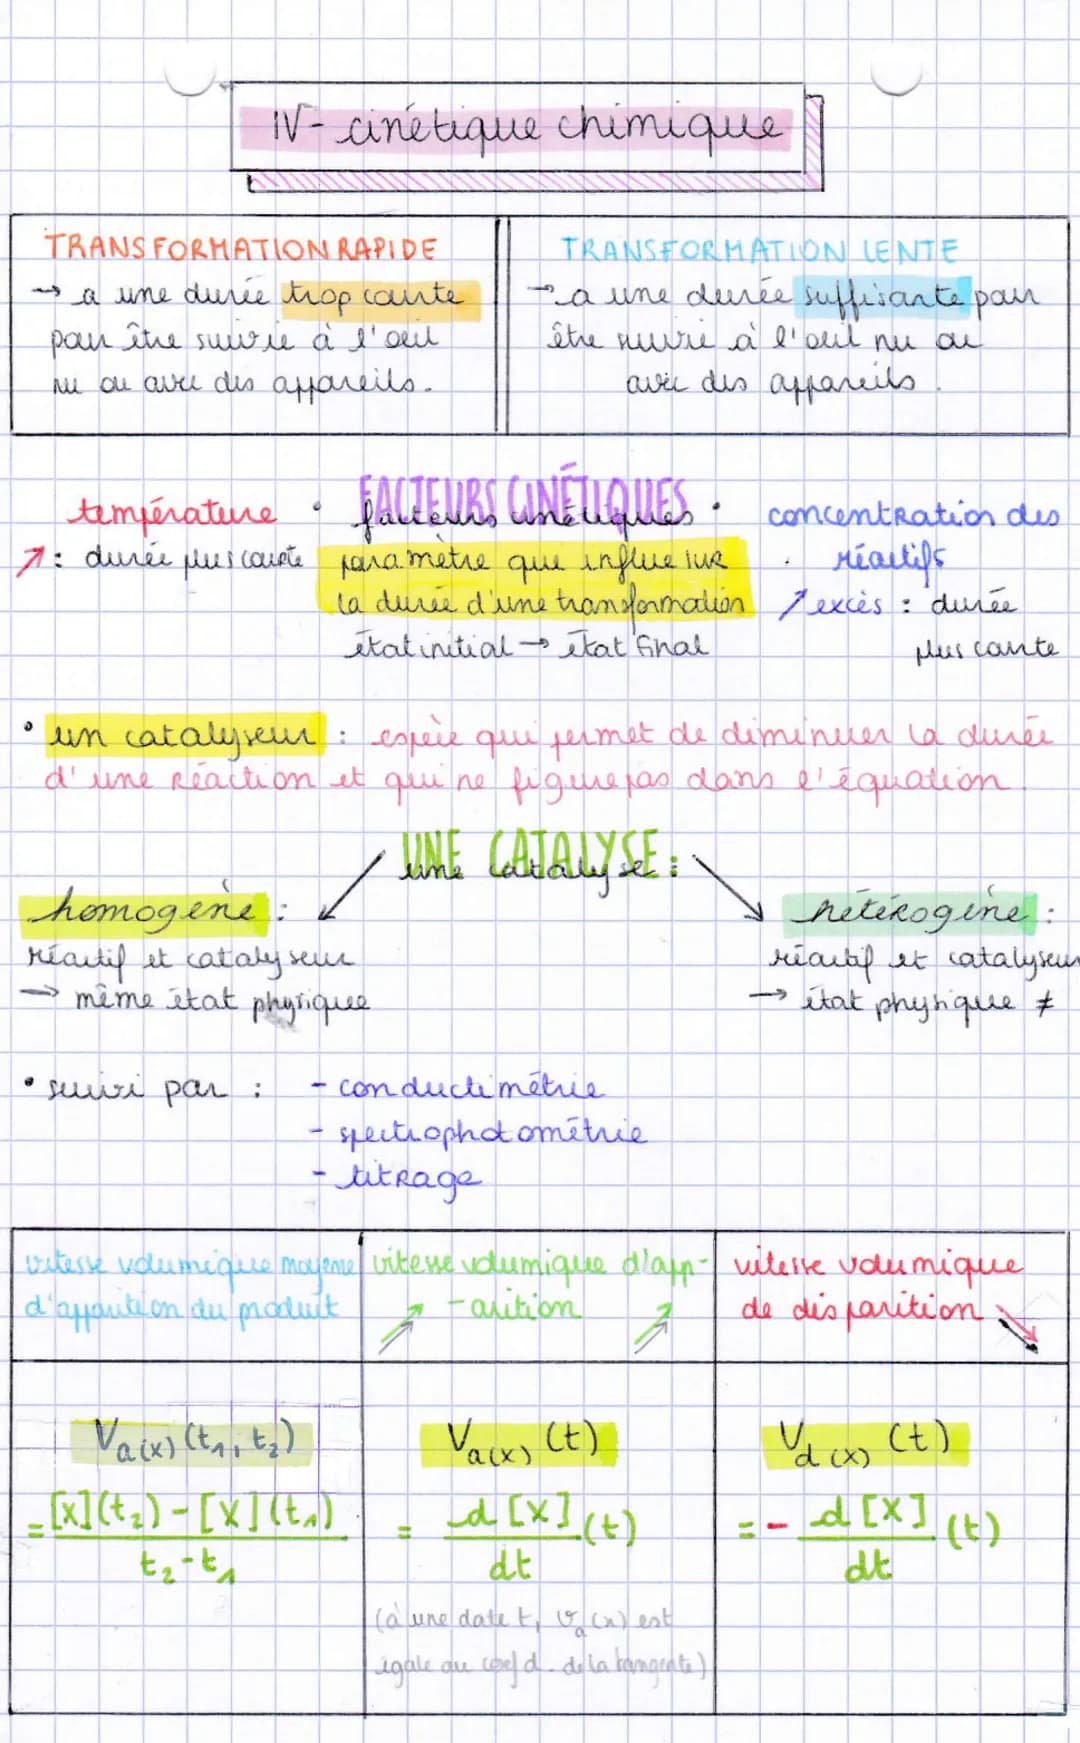 IV- cinétique chimique
TRANSFORMATION RAPIDE
→ a une durée trop courte
pour être suivie à l'oeil
nu ou avec des appareils.
TRANSFORMATION LENTE
→ a une durée suffisante pour
être suivie à l'oeil nu ou
avec des appareils.
température
↗ : durée plus courte
FACTEURS CINÉTIQUES
facteurs cinétiques
paramètre que influe sur
la durée d'une transformation
état initial → état final
concentration des
réactifs
↗ excès : durée
plus courte
• un catalyseur : espèce qui permet de diminuer la durée
d'une réaction et qui ne figure pas dans l'équation.
UNE CATALYSE :
une catalyse :
homogène :
réactif et catalyseur
→ même état physique
hétérogène :
réactif et catalyseur
→ état physique ≠
• suivi par :
- conductimétrie
- spectrophotométrie
- titrage
vitesse volumique moyenne
d'apparition du produit
vitesse volumique d'app-
-arition
vitesse volumique
de disparition
Va(x) (t1, t2)
= [x](t2) - [x](t1)
t2 - t1
Va(x) (t)
= d[x] (t)
dt
(à une date t, va(x) est
égale au coef d. de la tangente)
Vd(x) (t)
= - d[x] (t)
dt